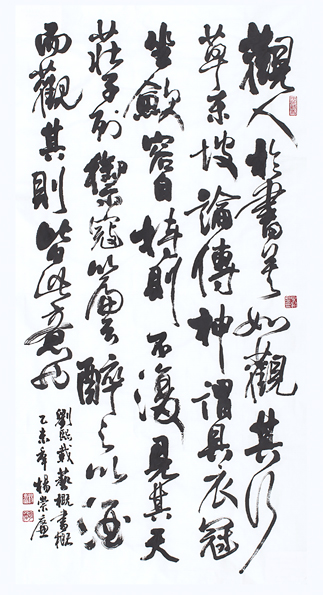 觀人於書莫如觀其行
草東坡論傳神謂具衣冠
坐斂容自持則不復見其天
莊子列禦寇篇云醉之以酒
而觀其則皆此意也
劉熙載藝概書概
乙未年楊崇